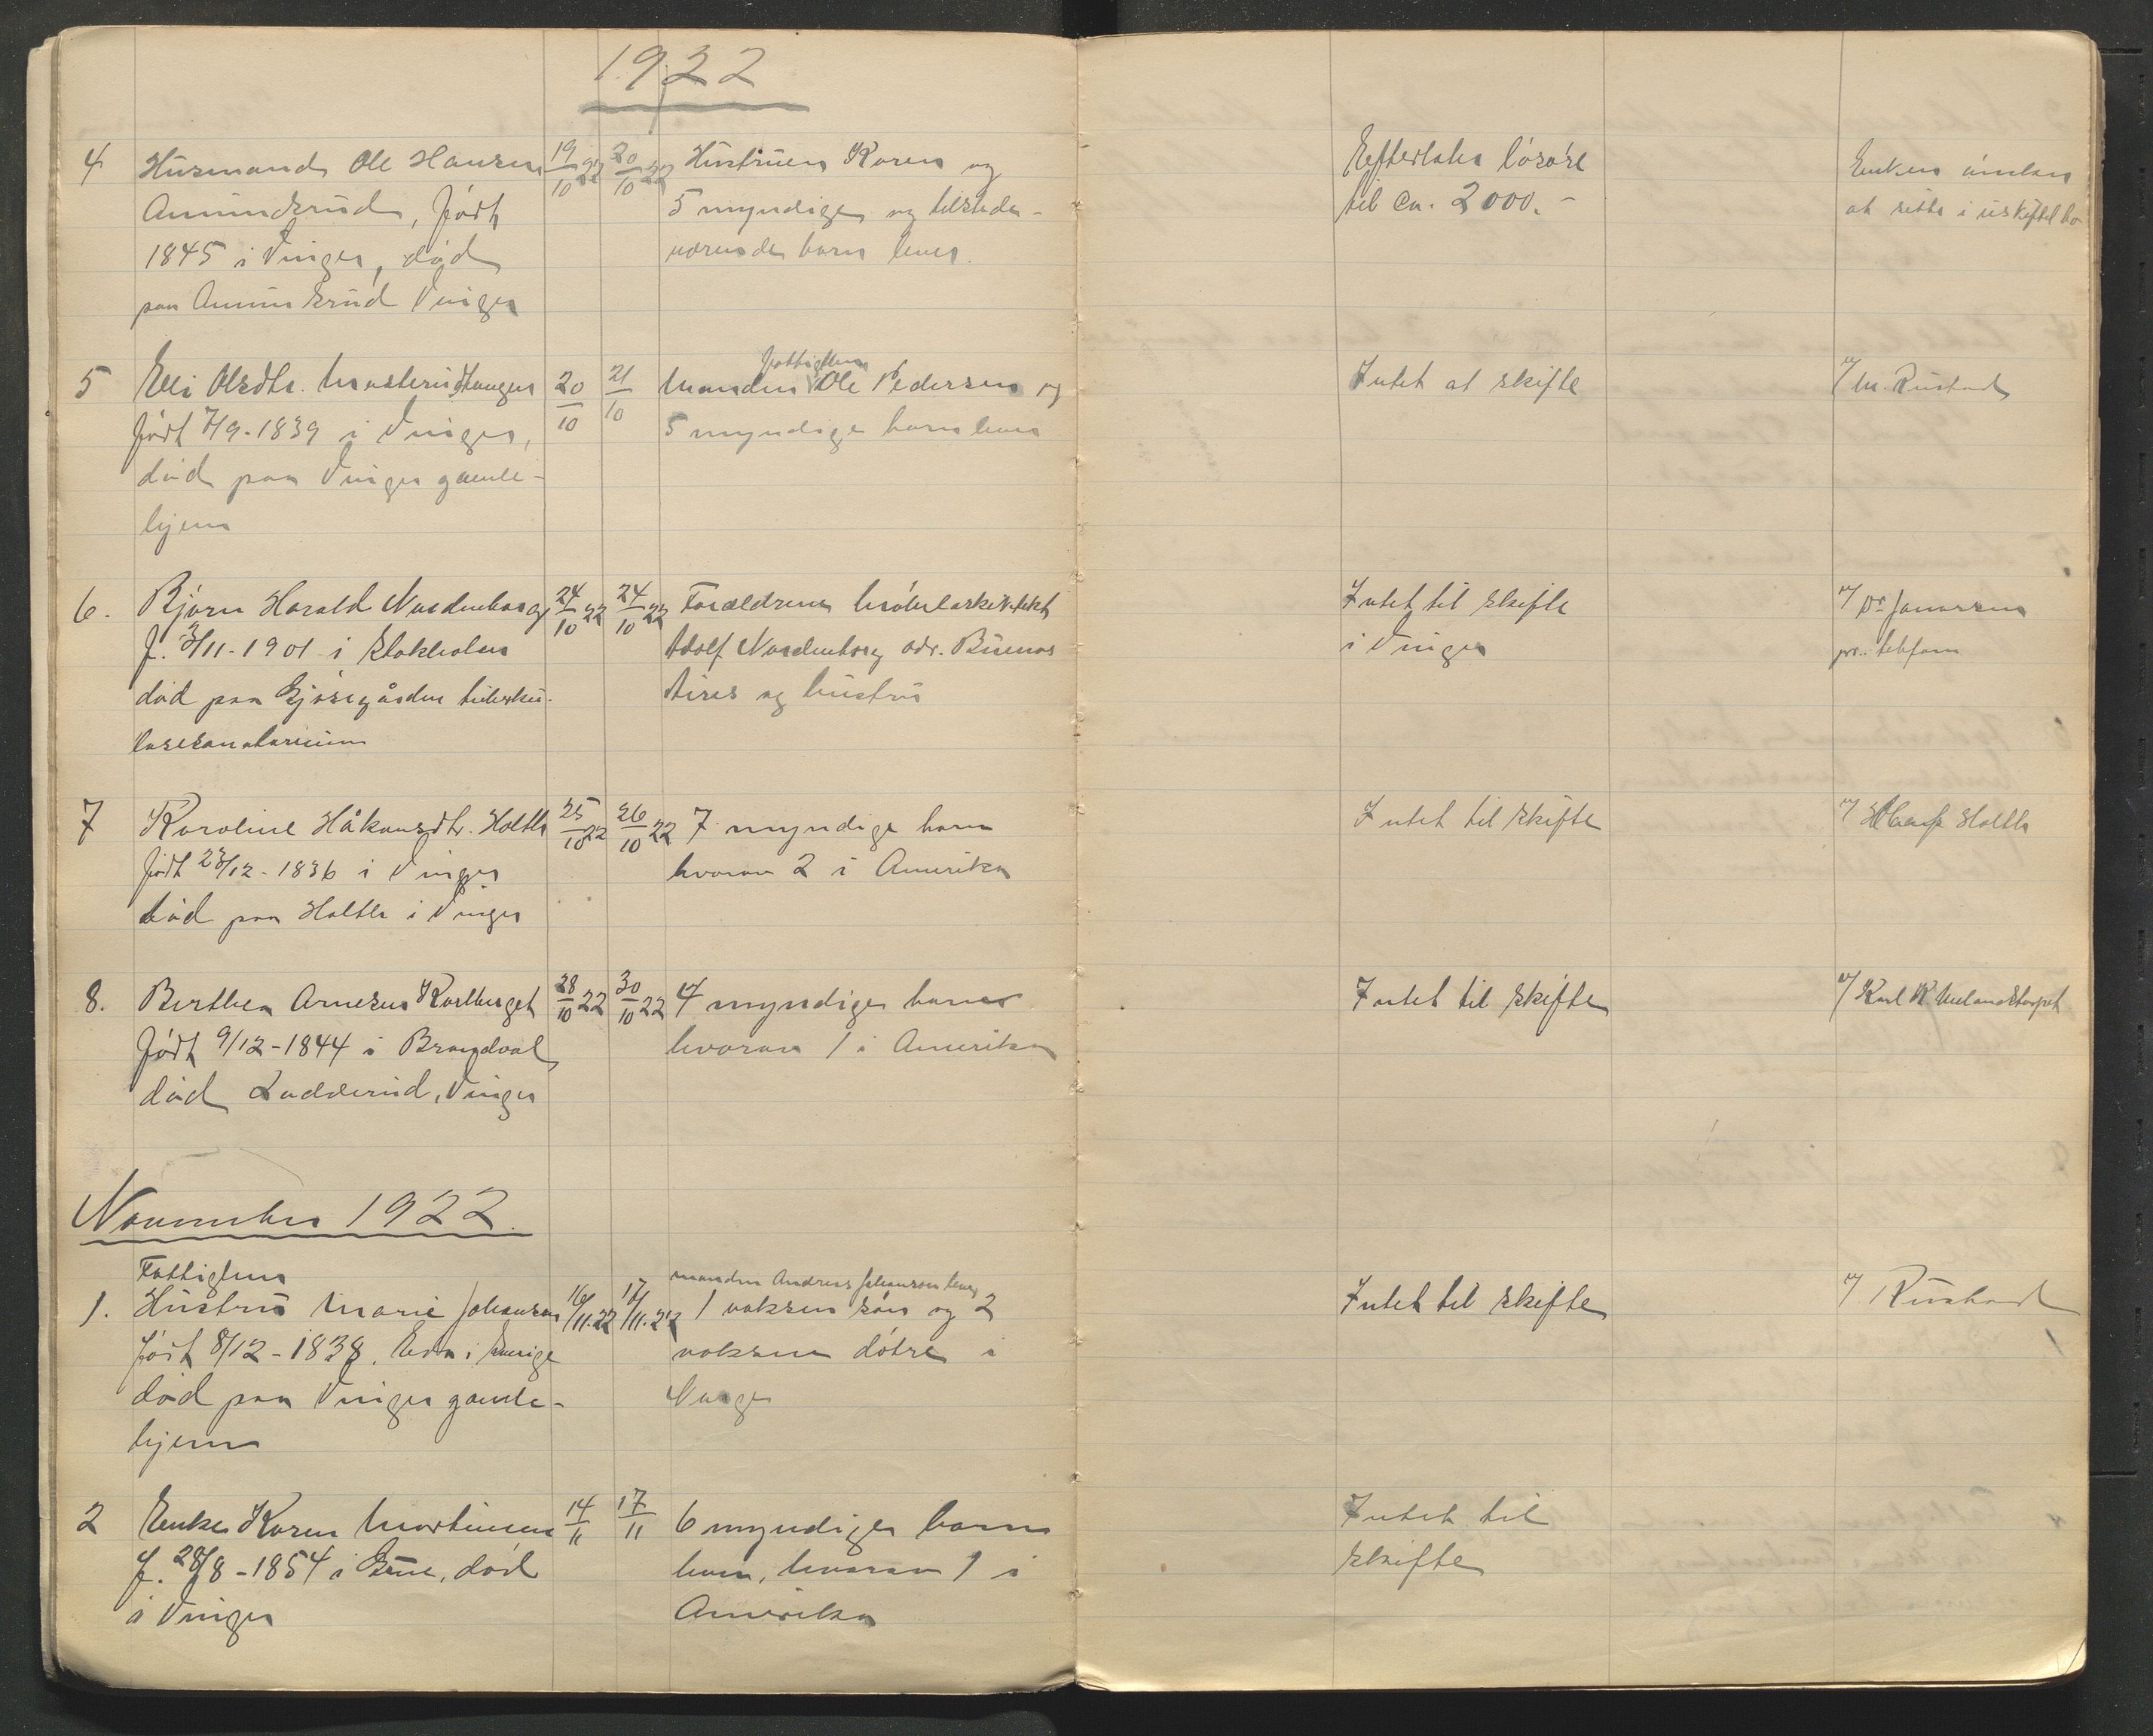 1922
4 Husmand Ole Hansen 19/10 22 20/10 22 Hustruen Karen og Efterlater løsøre Enken ønsker
Amundsrud, født 5 myndige og tilstede- til ca. 2000.- at sitte i uskiftet bo
1845 i Vinger, død værende barn lever.
paa Amundsrud Vinger
fattiglem
5 Eli Olsdtr. Masterudtangen 20/10 21/10 Manden Ole Pedersen og Intet at skifte v/ M. Rustad
født 7/9-1839 i Vinger, 5 myndige barn lever
død paa Vinger gamle-
hjem
6. Bjørn Harald Nordenborg 24/10 22 24/10 22 Forældrene Møbelarkitekt Intet til skifte v/ Dr Janssen
f. 3/11-1901 i Stokholm Adolf Nordenborg adr. Buenos i Vinger pr. telefon
død paa Gjøsegården tuberku- Aires og hustru
losesanatorium
7 Karoline Håkonsdtr. Holth 25/10 22 26/10 22 7 myndige barn Intet til skifte v/ Holth
født 23/12-1836 i Vinger hvorav 2 i Amerika
død paa Holth i Vinger
8. Berthea Arnesen Karlberget 28/10 22 30/10 22 4 myndige barn Intet til skifte v/ Karl K.
født 9/12-1844 i Brandval hvorav 1 i Amerika
død Ladderud, Vinger
November 1922.
Fattiglem manden Andreas Johansen lever
1. Hustru Marie Johansen 16/11.22 17/11.22 1 voksen søn og 2 Intet til skifte v/ Rustad
født 8/12-1838. Eda i Sverige voksne døtre i
død paa Vinger gamle- Norge
hjem
2 Enke Karen Martinsen 14/11 17/11 6 myndige barn Intet til
f. 28/8-1854 i Grue, død lever, hvorav 1 i skifte
i Vinger Amerika